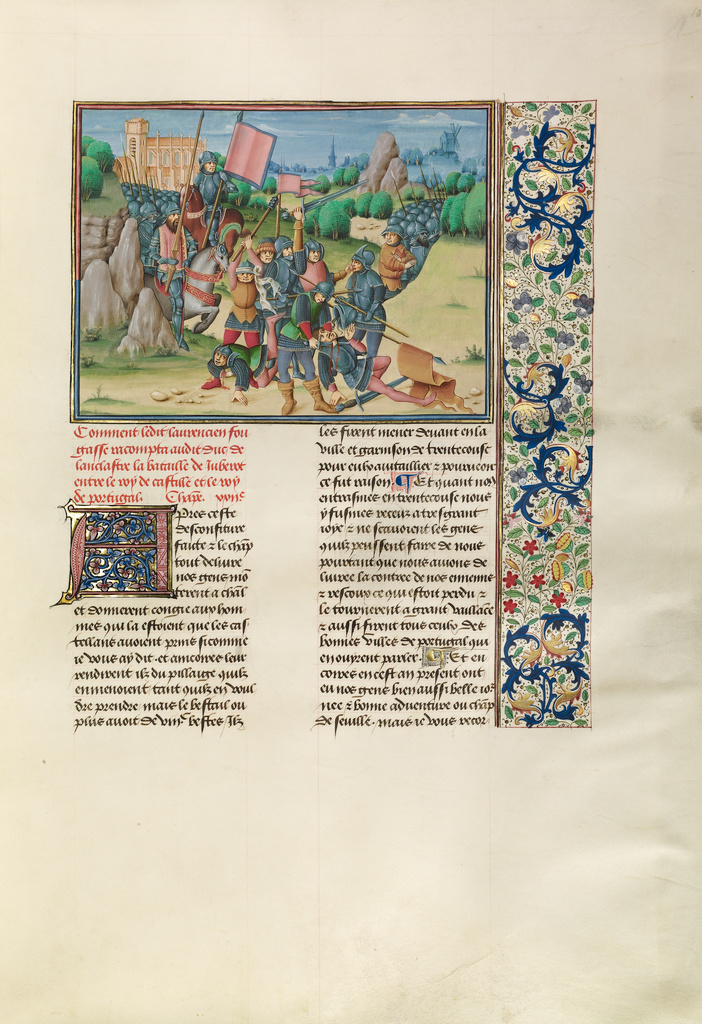 Comment ledit laurencien fou
gasse racompta audit duc de
lanclastre la bataille de Juberot
entre le roy de castille et le roy
de portugal. Chapr. xviie
Apres ceste
desconfiture
faitte & le chāp
tout delivre
nos gens mō
terent a chāl
et donnerent congie aux hom
mes qui la estoient que les cas
tellans avoient prins si comme
je vous ay dit. et ancores leur
rendirent ilz du pillaige quilz
enmenoient tant quilz en voul
dre prendre. mais le bestail ou
plus avoit de viiic bestes Ilz
les firent mener devant en la
ville et garnison de trentecouse
pour eulx avitaillier & pour
ce fut raison. Et quant nos
entrasmes en trentecouse nous
y fusmes receuz a tresgrant
joye & ne scavoient les gens
quilz peussent faire de nous
pourtant que nous avions de
livre la contree de nos ennemis
& rescoux ce qui estoit perdu &
le tournerent a grant vaillāce
& aussi firent tous ceulx des
bonnes villes de portugal qui
en ouyrent parler. Et en
cores en cest an present ont
eu nos gens bien aussi belle jor
nee & bonne adventure ou chāp
de seville. mais je vous recor